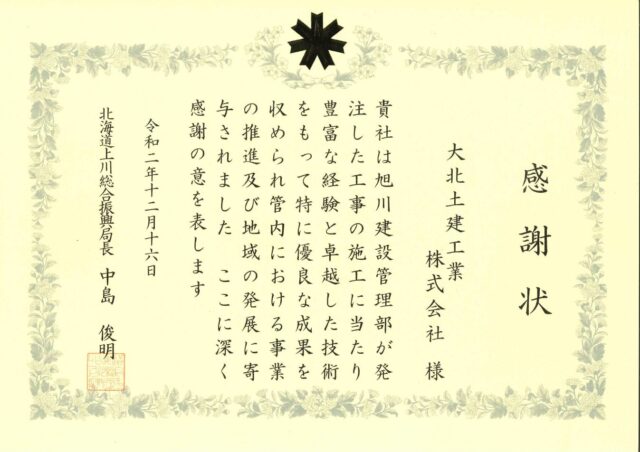 感謝状
大北土建工業
株式会社 様
貴社は旭川建設管理部が発
注した工事の施工に当たり
豊富な経験と卓越した技術
をもって特に優良な成果を
収められ管内における事業
の推進及び地域の発展に寄
与されました ここに深く
感謝の意を表します
令和二年十二月十六日
北海道上川総合振興局長 中島 俊明